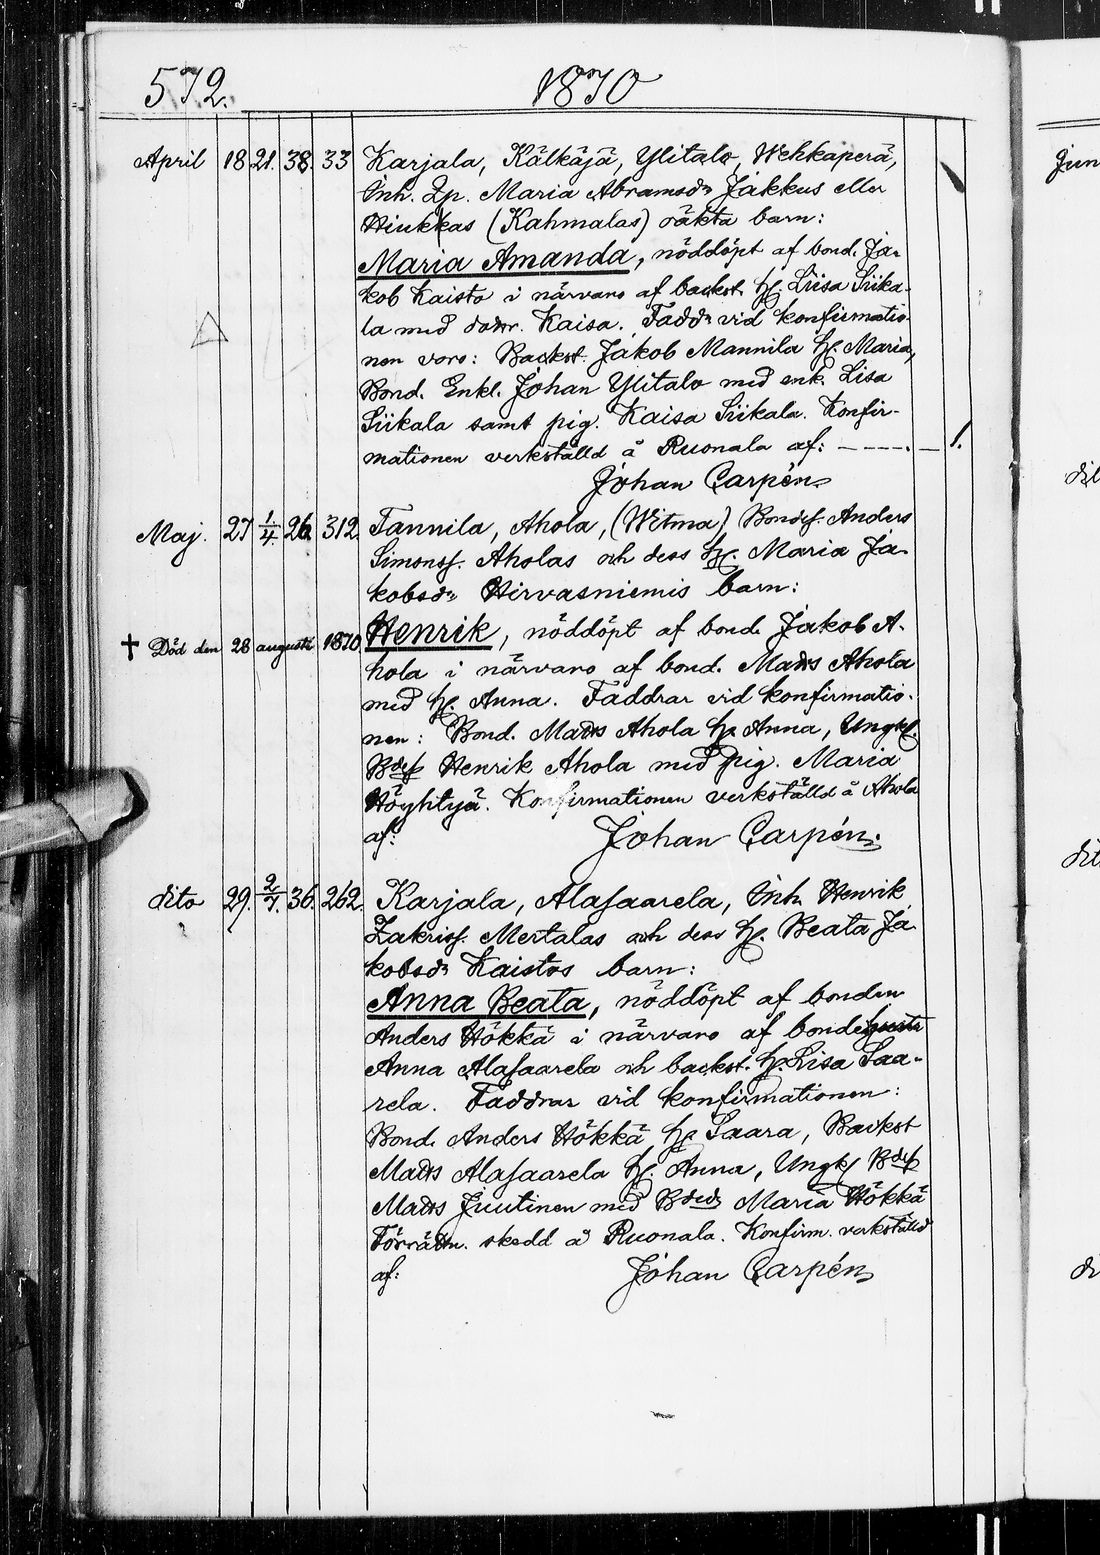 572.
1870
April 18 21. 38. 33 Karjala, Kälkäjä, Ylitalo, Wehkaperä,
Inh. Qp. Maria Abramsdr Jakkus eller
Hiukkas (Kahmalas) oäkta barn:
Maria Amanda, nöddöpt af bond. Ja-
kob Kaisto i närvaro af backst. h. Liisa Siika-
la med dottr. Kaisa. Faddr vid konfirmatio-
nen voro: Backst. Jakob Mannila h. Maria,
Bond. Enkl. Johan Ylitalo med enk. Lisa
Siikala samt pig. Kaisa Siikala. Konfir-
mationen verkställd å Ruonala af: – – – – – 1.
Johan Carpén
Maj. 27 1/4. 26. 312. Tannila, Ahola, (Witma) Bondes. Anders
Simonss. Aholas och dess h. Maria Ja-
kobsdr Hirvasniemis barn:
✝ Död den 28 augusti 1870 Henrik, nöddöpt af bond. Jakob A-
hola i närvaro af bond. Matts Ahola
med h. Anna. Faddrar vid konfirmatio-
nen: Bond. Matts Ahola h. Anna, Ungkl.
Bdes Henrik Ahola med pig. Maria
Höyhtyä. Konfirmationen verkställd å Ahola
af: Johan Carpén.
dito 29. 2/7. 36. 262. Karjala, Alasaarela, Inh. Henrik
Zakriss. Mertalas och dess h. Beata Ja-
kobsdr Kaistos barn:
Anna Beata, nöddöpt af bonden
Anders Hökkä i närvaro af bondehustr
Anna Alasaarela och backst. h. Lisa Saa-
rela. Faddrar vid konfirmationen:
Bond. Anders Hökkä h. Saara, Backst
Matts Alasaarela h. Anna, Ungk. Bdes
Matts Juutinen med Bdedr Maria Hökkä
Förrättn. skedd å Ruonala. Konfirm. verkställd
af: Johan Carpén
Jun
dit
dit
di